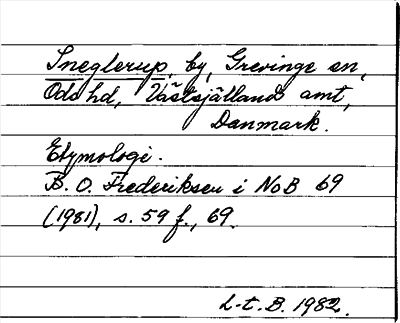 Sneglerup, by, Grevinge sn,
Ods hd, Västsjälland amt,
Danmark.
Etymologi.
B. O. Frederiksen i NoB 69
(1981), s. 59 f., 69.
L-t. B. 1982.